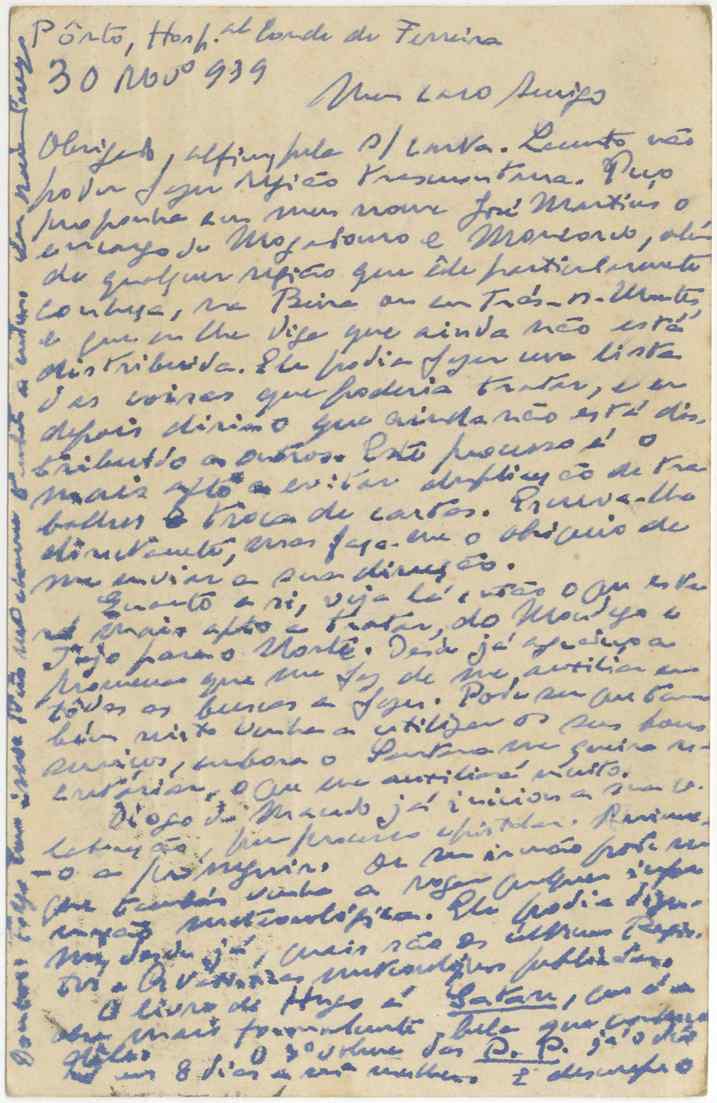 Pôrto, Hosp.al Conde de Ferreira
30 Novº 939
Meu caro Amigo
Obrigado, alfim, pela s/ carta. Lamento não
poder fazer região trasmontana. Peço
proponha em meu nome José Martins o
encargo de Mogadouro e Moncorvo, além
de qualquer região que êle particularmente
conheça, na Beira ou em Trás-os-Montes,
e que eu lhe diga que ainda não está
distribuida. Ele podia fazer uma lista
das coisas que poderia tratar, e eu
depois dirimo que ainda não está dis-
tribuído a outros. Este processo é o
mais apto a evitar duplicação de tra
balhos e troca de cartas. Escreva-lhe
directamente, mas faça-me o obséquio de
me enviar a sua direcção.
Quanto a si, veja lá então o que esta
rá mais apto a tratar, do Mondego e
Tejo para o Norte. Desde já agradeço a
promessa que me faz de me auxiliar em
tôdas as buscas a fazer. Pode ser que tam
bém nisto venha a utilizar os seus bons
serviços, embora o Santana me queira se-
cretariar, o que me auxiliará muito.
Diogo de Macedo já iniciou a sua co-
laboração, por processo epistolar. Anime-
-o a prosseguir. De seu irmão pode ser
que também venha a rogar qualquer infor
mação meteorológica. Ele podia dizer-
me, desde já, quais são os últimos
meteorológicos publicados.
O livro de Hugo é Satan, que é a
obra mais formidavelmente bela que conheço
dêle. O 3º volume das P. P. já o dei
há uns 8 dias a minha mulher. E desculpe o